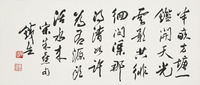 半畝方塘一
鑑開天光
雲影共徘
徊問渠那
得清如許
為有源頭
活水來
宋朱熹句